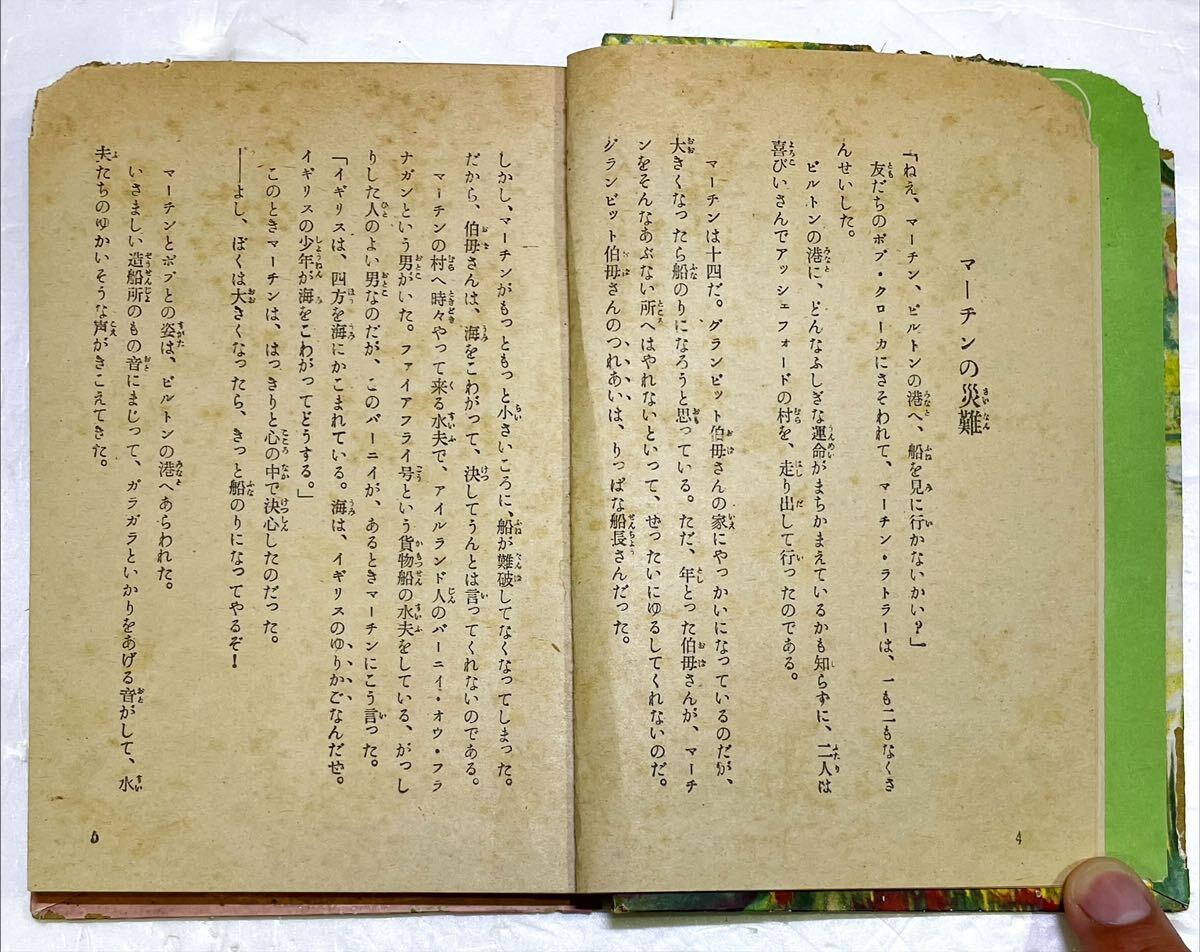 マーチンの災難
「ねえ、マーチン、ピルトンの港へ、船を見に行かないかい？」
友だちのボブ・クローカにさそわれて、マーチン・ラトラーは、一も二もなくさ
んせいした。
ピルトンの港に、どんなふしぎな運命がまちかまえているかも知らずに、二人は
喜びいさんでアッシェフォードの村を、走り出して行ったのである。
マーチンは十四だ。グランビット伯母さんの家にやっかいになっているのだが、
大きくなったら船のりになろうと思っている。ただ、年とった伯母さんが、マーチ
ンをそんなあぶない所へはやれないといって、ぜったいにゆるしてくれないのだ。
グランビット伯母さんのつれあいは、りっぱな船長さんだった。
4
しかし、マーチンがもっともっと小さいころに、船が難破してなくなってしまった。
だから、伯母さんは、海をこわがって、決してうんとは言ってくれないのである。
マーチンの村へ時々やって来る水夫で、アイルランド人のバーニイ・オウ・フラ
ナガンという男がいた。ファイアフライ号という貨物船の水夫をしている、がっし
りした人のよい男なのだが、このバーニイが、あるときマーチンにこう言った。
「イギリスは、四方を海にかこまれている。海は、イギリスのゆりかごなんだぜ。
イギリスの少年が海をこわがってどうする。」
このときマーチンは、はっきりと心の中で決心したのだった。
――よし、ぼくは大きくなったら、きっと船のりになってやるぞ！
マーチンとボブとの姿は、ピルトンの港へあらわれた。
いさましい造船所のもの音にまじって、ガラガラといかりをあげる音がして、水
夫たちのゆかいそうな声がきこえてきた。